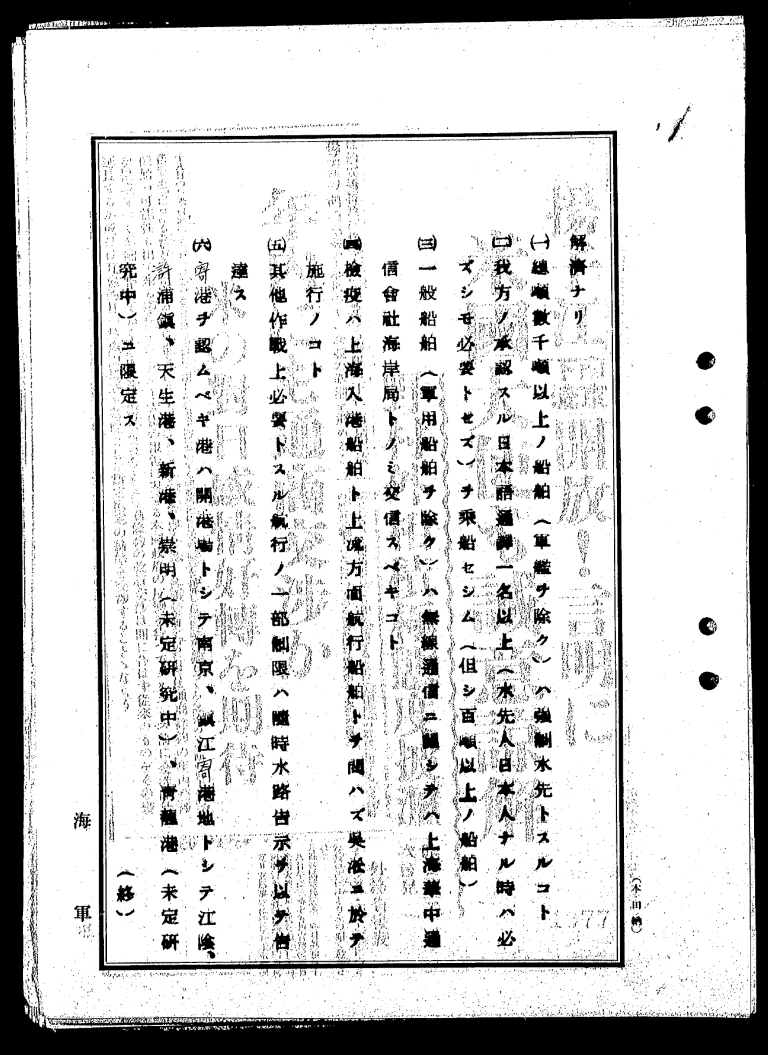 解濟ナリ
㈠總噸數千噸以上ノ船舶（軍艦ヲ除ク）ハ强制水先トスルコト
㈡我方ノ承認スル日本語通譯一名以上（水先人日本人ナル時ハ必
ズシモ必要トセズ）ヲ乘船セシム（但シ百噸以上ノ船舶）
㈢一般船舶（軍用船舶ヲ除ク）ハ無線通信ニ關シテハ上海華中通
信會社海岸局トノミ交信スベキコト
㈣檢疫ハ上海入港船舶ト上流方面航行船舶トヲ問ハズ吳淞ニ於テ
施行ノコト
㈤其他作戰上必要トスル航行ノ一部制限ハ隨時水路吿示ヲ以テ吿
達ス
㈥寄港ヲ認ムベキ港ハ開港場トシテ南京、鎭江寄港地トシテ江陰、
滸浦鎭、天生港、新港、崇明（未定硏究中）、靑龍港（未定硏
究中）ニ限定ス
（終）
海軍
（本田納）